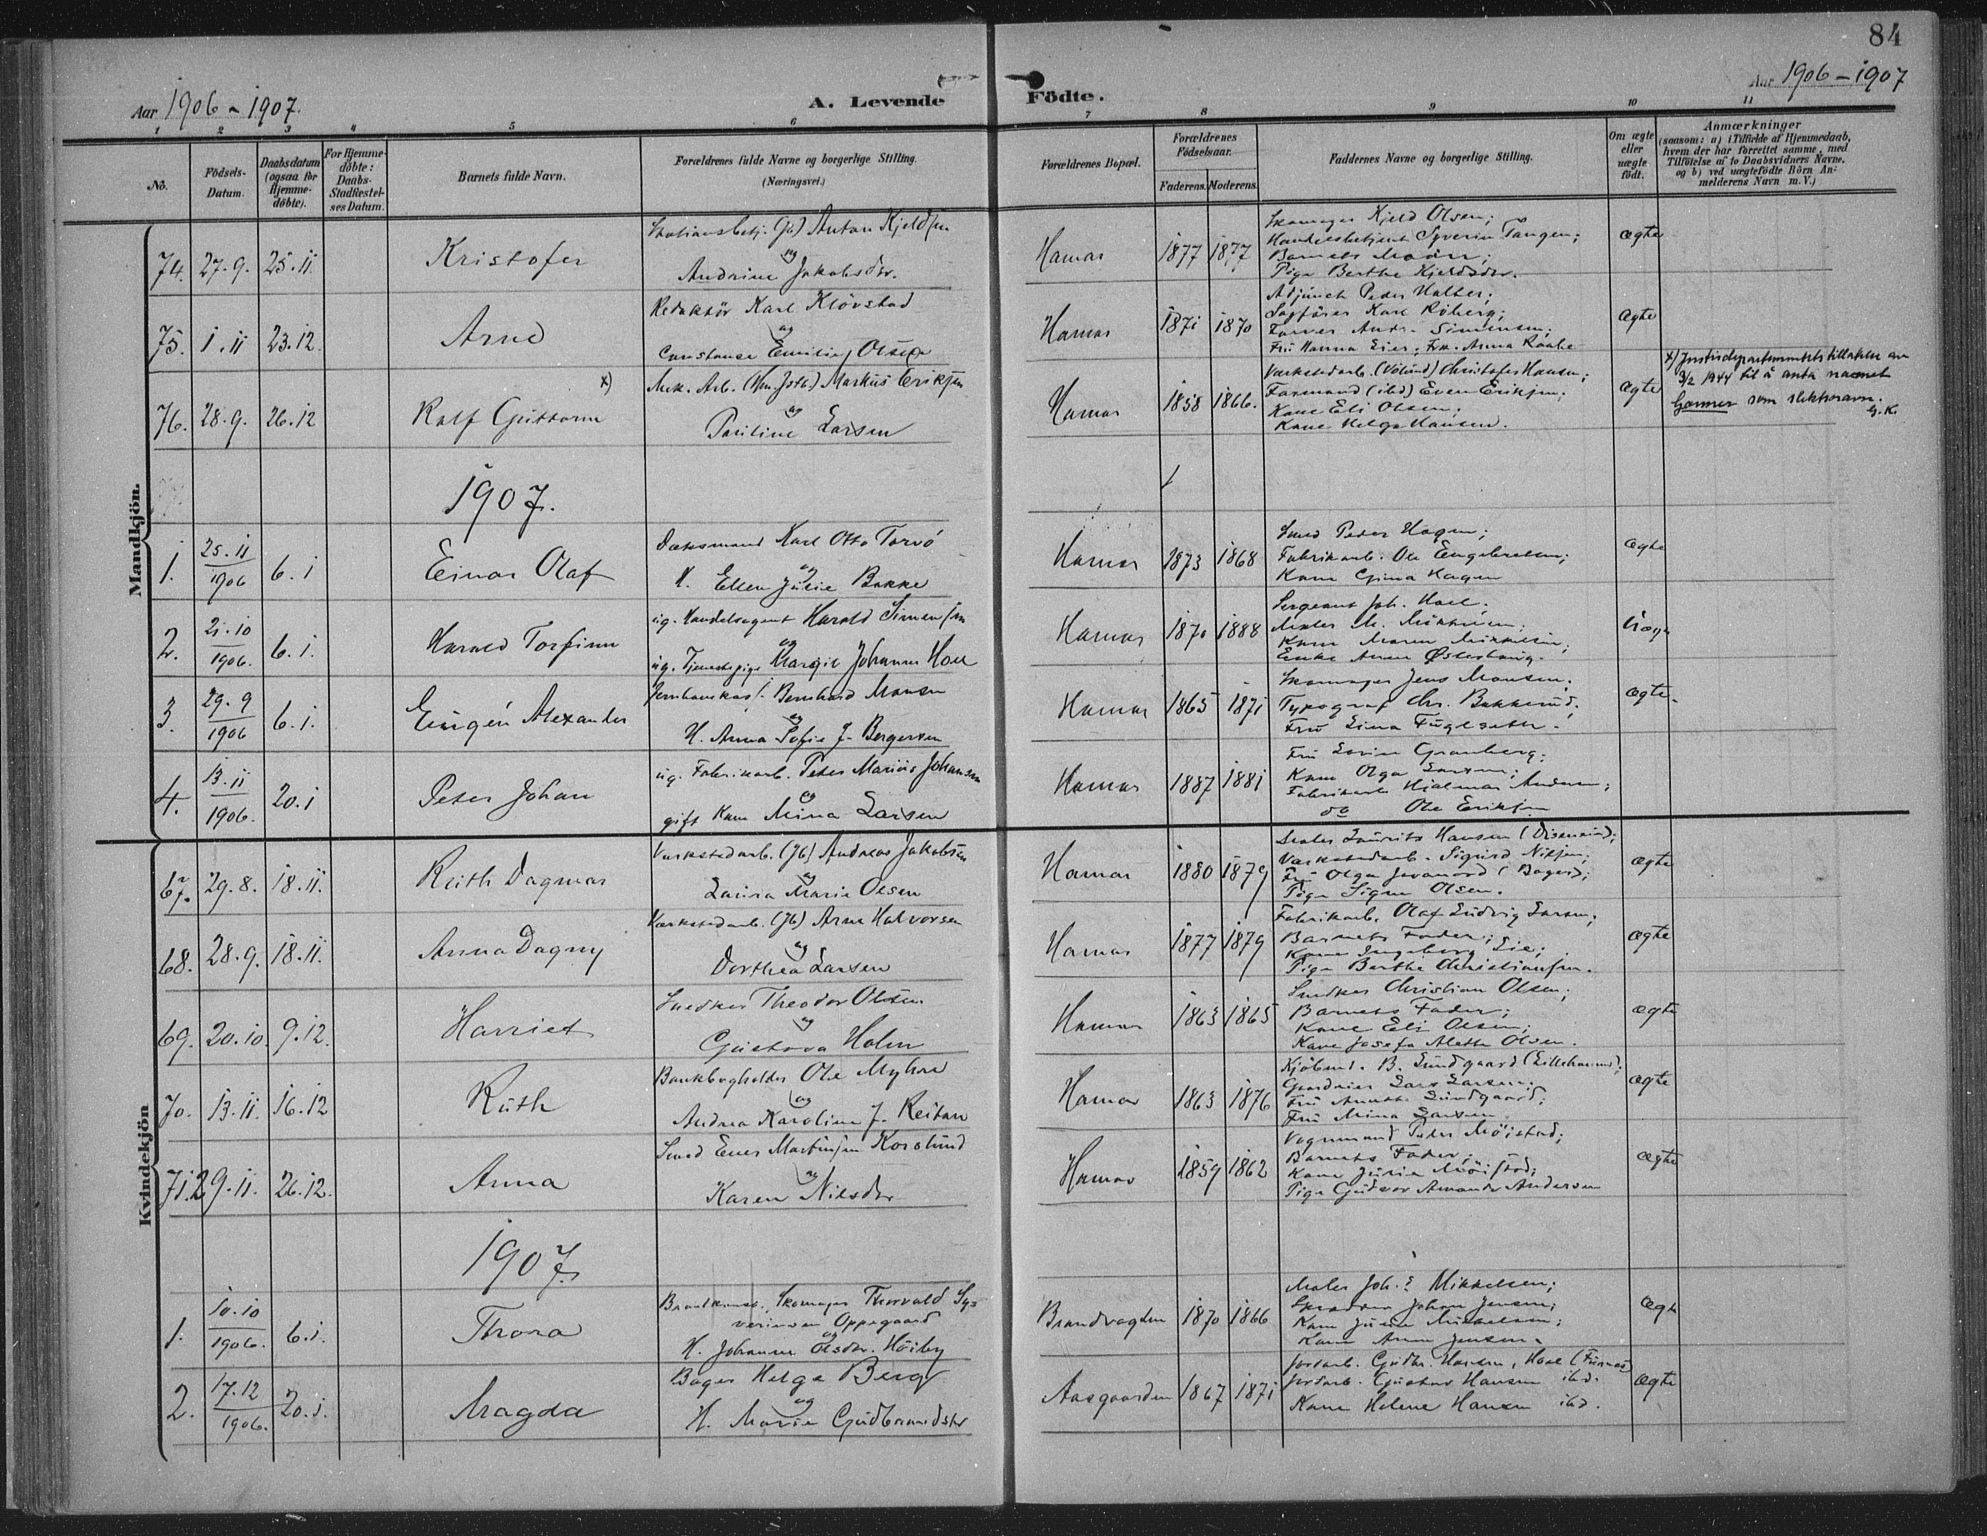 84
Aar 1906 - 1907.
A. Levende Födte.
Aar 1906 - 1907
1 2 3 4 5 6 7 8 9 10 11
No.
Födsels-Datum.
Daabsdatum (ogsaa for Hjemme-döbte).
For Hjemme-döbte: Daabs-Stadfæstel-ses Datum.
Barnets fulde Navn.
Forældrenes fulde Navne og borgerlige Stilling.
(Næringsvei.)
Forældrenes Bopæl.
Forældrenes Födselsaar.
Faderens. Moderens.
Faddernes Navne og borgerlige Stilling.
Om ægte eller uægte födt.
Anmærkninger
(saasom: a) i Tilfælde af Hjemmedaab, hvem der har forrettet samme, med Tilföielse af to Daabsvidners Navne, og b) ved uægtefödte Börn An-melderens Navn m. V.)
Mandkjön.
74. 27.9. 25.11 Kristofer
Stationsbetj. (Jb) Anton Kjeldsen
og
Andrine Jakobsdr.
Hamar 1877 1877
Skomager Kjeld Olsen;
Handelsbetjent Syverin Tangen;
Barnets Moder;
Pige Berthe Kjeldsdr.
ægte
75. 1.11 23.12. Arne
Redaktör Karl Klövstad
og
Constance Emilie Olsen
Hamar 1871 1870
Adjunct Peder Halter;
Sagförer Karl Röberg;
Farver Andr. Simensen;
Fru Hanna Lier; Frk. Anna Raabe
ægte
76. 28.9. 26.12 Ralf Guttorm x)
Mek. Arb. (Hm. Jstb.) Markus Eriksen
og
Pauline Larsen
Hamar 1858 1866.
Værkstedarb. Christofer Hansen;
Formand (ibd) Even Eriksen.
Kone Eli Olsen;
Kone Helga Hansen.
ægte
x) Justisdepartementets tillatelse av
3/2 1944 til å anta navnet
Garmer som slektsnavn.
G.K.
1907.
1. 25.11 1906 6.1 Einar Olaf
Karl Otto Torvö
og
H. Ellen Julie Bakke
Hamar 1873 1868
Smed Peder Hagen;
Fabrikarb. Ole Engebretsen;
Kone Gina Hagen
ægte
2. 21.10 1906. 6.1. Harald Torfinn
ug. Handelsagent Harald Simensen
og
ug. Tjenestepige Margit Johanne Hoel
Hamar 1870 1888
Sergeant Joh. Hoel;
Maler M. Mikkelsen;
Kone Maren Mikkelsen;
Enke Anne Østerhaug.
Uægte
3. 29.9 1906 6.1. Eugén Alexander
Bernhard Monsen
og
H. Anna Sofie J. Bergersen
Hamar 1865 1871
Skomager Jens Monsen;
Typograf Chr. Bakkerud;
Fru Lina Fugleseth.
ægte.
4. 13.11 1906. 20.1 Peter Johan
ug. Fabrikarb. Peter Marius Johansen
og
gift Kone Mina Larsen
Hamar 1887 1881
Fru Grønberg;
Kone Olga Larsen;
Fabrikarb Hjalmar Andersen;
do Ole Eriksen
Kvindekjön
67. 29.8. 18.11. Reith Dagmar
Værkstedarb. (Jb) Andreas Jakobsen
og
Laura Marie Olsen
Hamar 1880 1879
Maler Laurits Hansen
Værkstedarb. Sigurd Nilsen;
Fru Olga
Pige Signe Olsen.
ægte
68. 28.9. 18.11. Anna Dagny
Værkstedarb. (Jb) Arne Halvorsen
og
Dorthea Larsen
Hamar 1877 1879
Fabrikarb. Olaf Ludvig Larsen;
Barnets Fader;
Kone Ingeborg Lie;
Pige Berthe Christiansen.
ægte
69. 20.10. 9.12. Harriet
Snedker Theodor Olsen
og
Gustava Holm
Hamar 1863 1865
Snedker Christian Olsen;
Barnets Fader;
Kone Eli Olsen;
Kone Josefa Alette Olsen.
ægte
70. 13.11. 16.12 Ruth
Bankbogholder Ole Myhre
og
Andrea Karoline J. Reitan
Hamar 1863 1876
Kjöbmd. B. Lundgaard (Lillehammer);
Lars Larsen;
Fru Anette Lundgaard;
Fru Mina Larsen.
ægte
71. 29.11. 26.12. Anna
Smed Even Martinsen Korslund
og
Karen Nilsdr
Hamar 1859 1862
Vognmand Peder Möistad;
Barnets Fader;
Kone Julie Möistad;
Pige Gudvor Amanda Andersen
ægte
1907.
1. 10.10 1906. 6.1. Thora
Skomager Thorvald Sy-
verinsen Oppegaard
og
H. Johanne Olsdr. Höiby
Brandvagten 1870 1866
Maler Joh. Mikkelsen;
Skrædder Johan Jensen;
Kone Julie Mikkelsen;
Kone Anne Jensen.
ægte
2. 17.12 1906. 20.1. Magda
Bager Helge Berg
og
H. Marie Gudbrandsdr
Aasgaarden 1867 1871
Jordarb. Gudbr. Hansen, Hoel (Furnes)
Jordarb. Gustav Hansen ibd.
Kone Helene Hansen ibd.
ægte